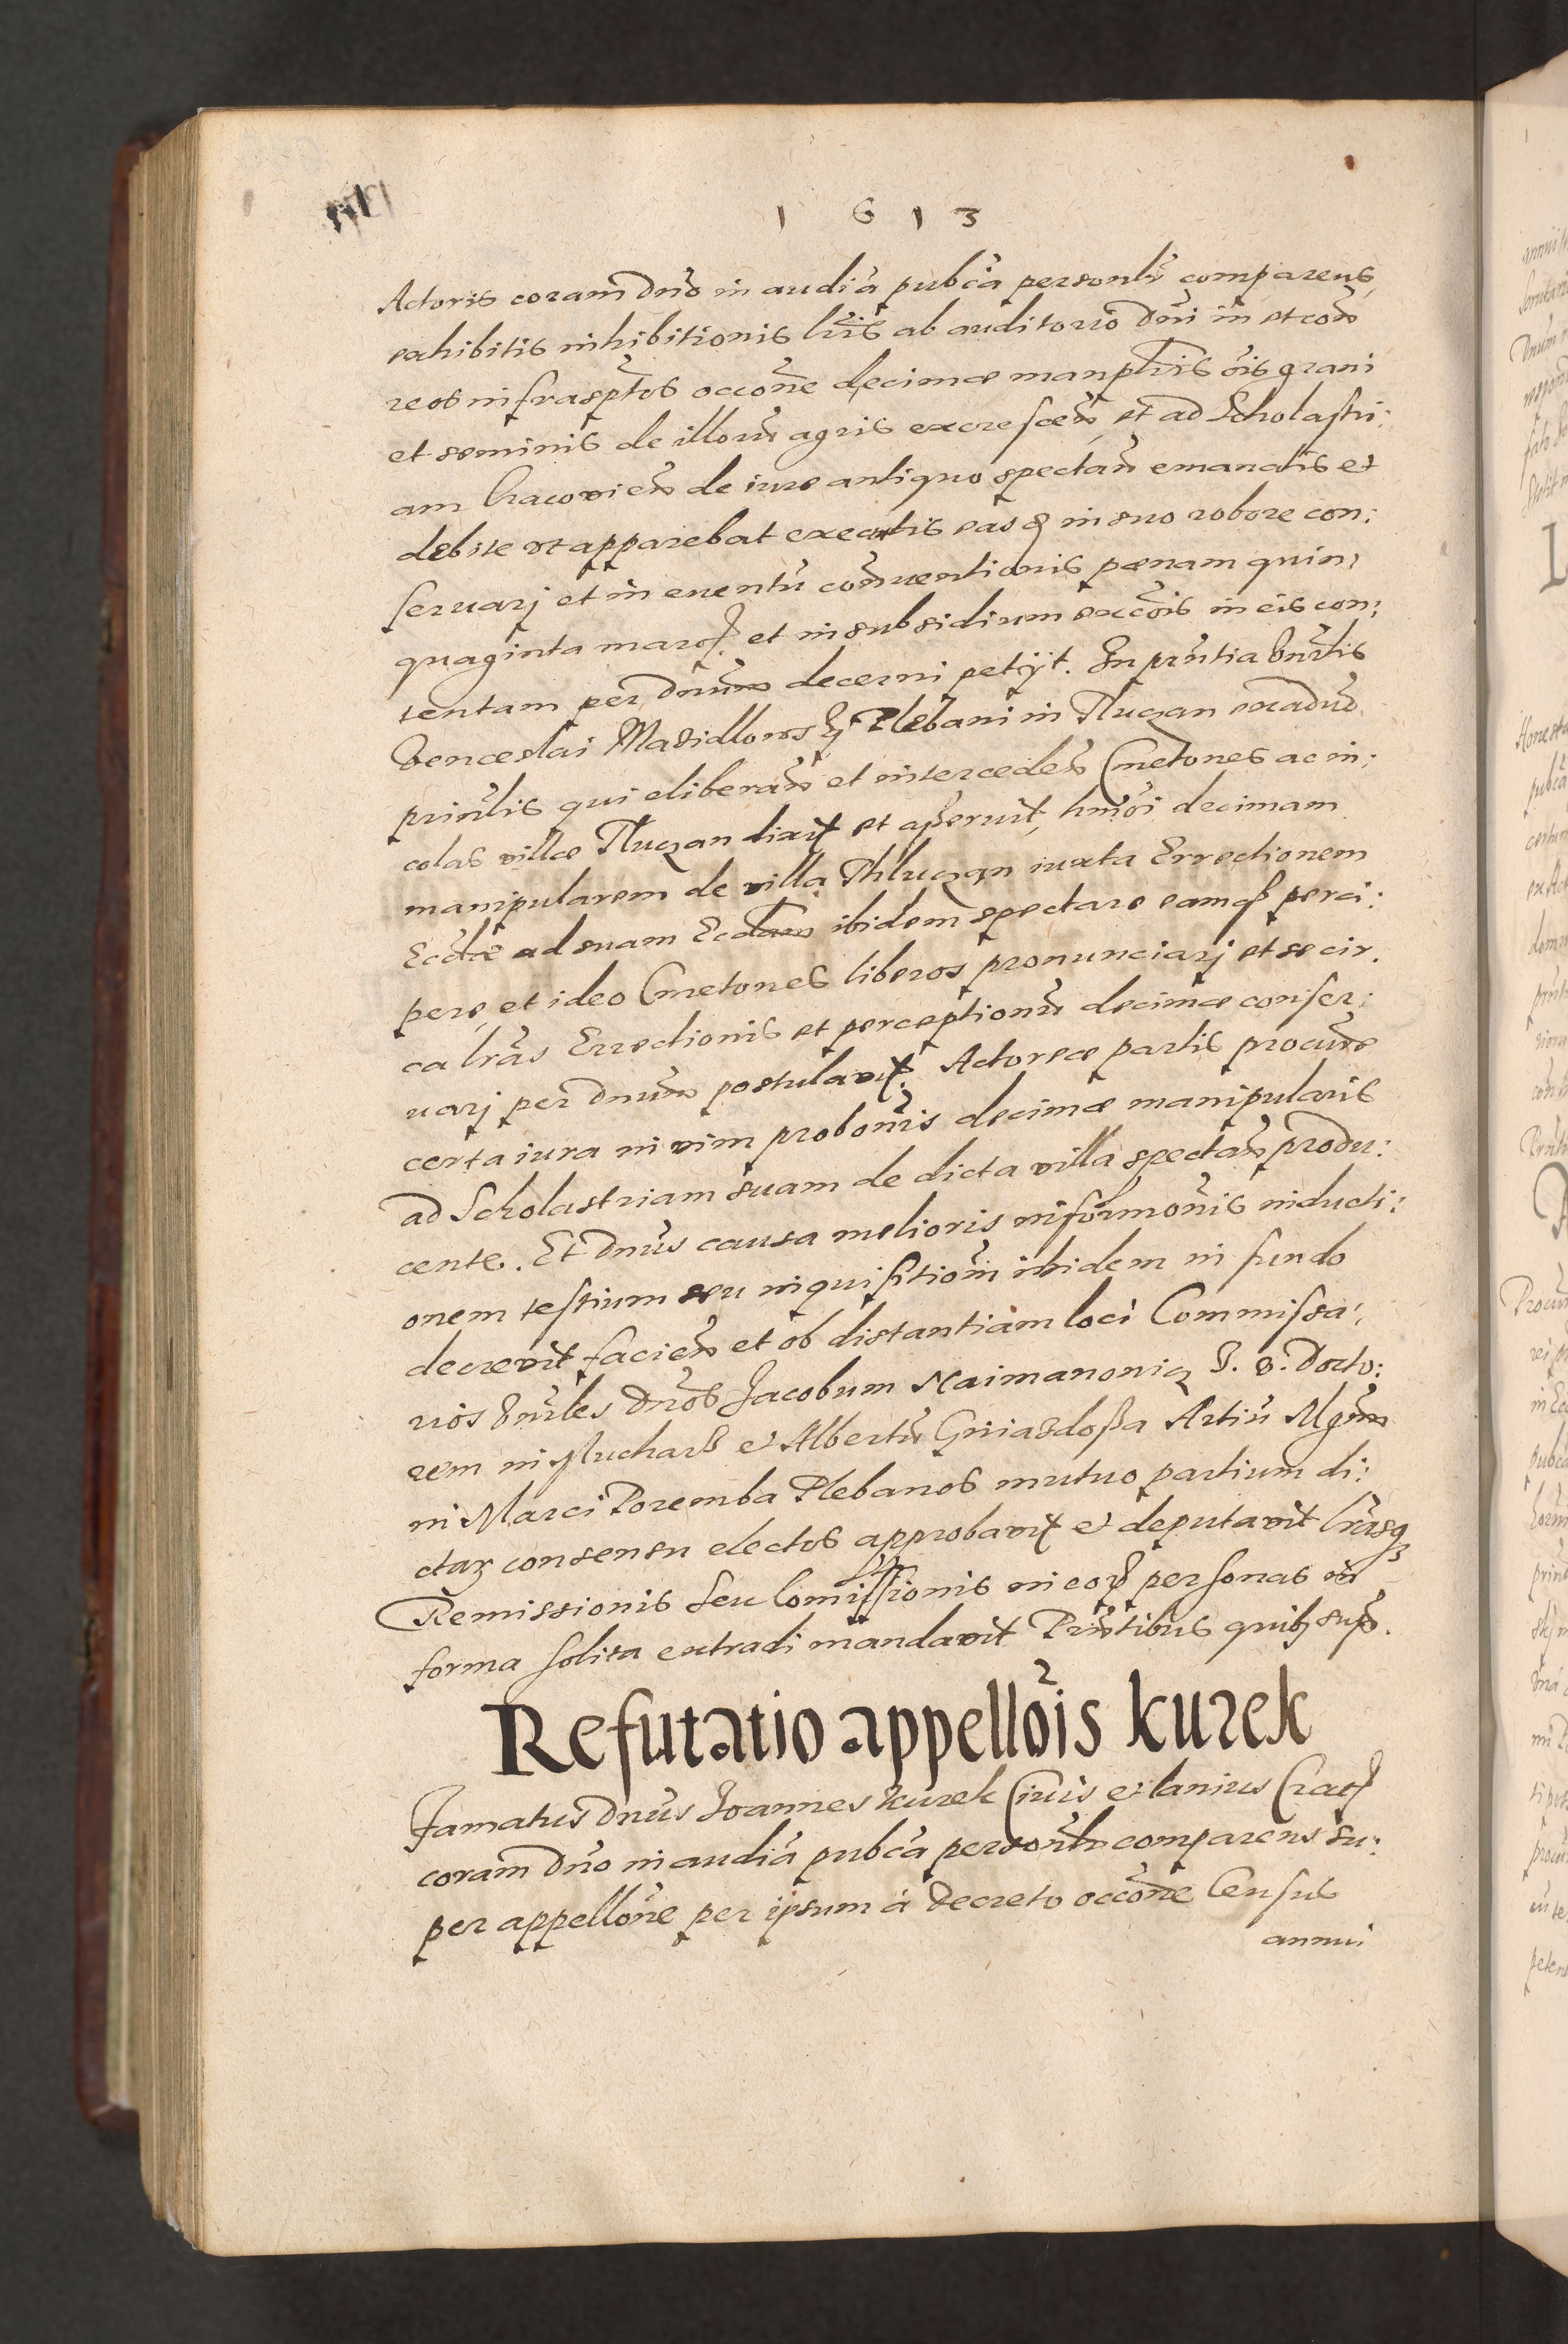 1 6 1 3
Actoris coram Dno in audia pubca personlr comparens
exhibitis inhibitionis lris ab auditorio Dni in et con
reos infrasptos occone decimae manplris ois grani
et seminis de illoru agris excrescen et ad Scholastri:
am Cracovien de iure antiquo spectan emanatis et
debite vt apparebat executis easq in suo robore con:
seruarj et in euentu conuentionis paenam quin,
quaginta marc. et in subsidium exccois in eis con,
tentam per Dnum decerni petijt. In prntia Vnrlis
Venceslai Plebani in Tluczan exaduo
prinlis qui eliberan et interceden Cmetones ac in:
colas villae Tluczan dixit et asseruit, hmoi decimam
manipularem de villa Thluczan iuxta Errectionem
Eccliae ad suam Ecclam ibidem spectare eamq perci:
pere, et ideo Cmetones liberos pronunciarj et se cir.
ca lras Errectionis et perceptionu decimae conser:
uarj per Dnum postulavit. Actoreae partis procure
certa iura in vim probonis decimae manipularis
ad Scholastriam suam de dicta villa spectan produ:
cente. Et Dnus causa melioris informonis inducti:
onem testium seu inquisitiom ibidem in fundo
decrevit facien et ob distantiam loci Commissa,
rios Vnrles Dnos Jacobum Naimanoniq S. D. Docto:
rem in Mucharz et Albertu Gniazdossa Artiu Mgrum
in Marci Poremba Plebanos mutuo partium di:
ctaz consensu electos approbavit et deputavit lrasq
Remissionis seu Comissionis in eoru personas in
forma solita extradi mandavit Prntibus quib supr.
Refutatio appellois kurek
Famatus Dnus Joannes kurek Civis et lanius Crac
coram Dno in audia pubca personlr comparens su:
per appellone per ipsum à Decreto occone Census
annui